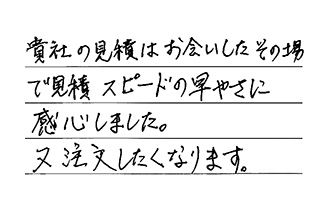 貴社の見積はお会いしたその場
で見積 スピードの早やさに
感心しました。
又注文したくなります。